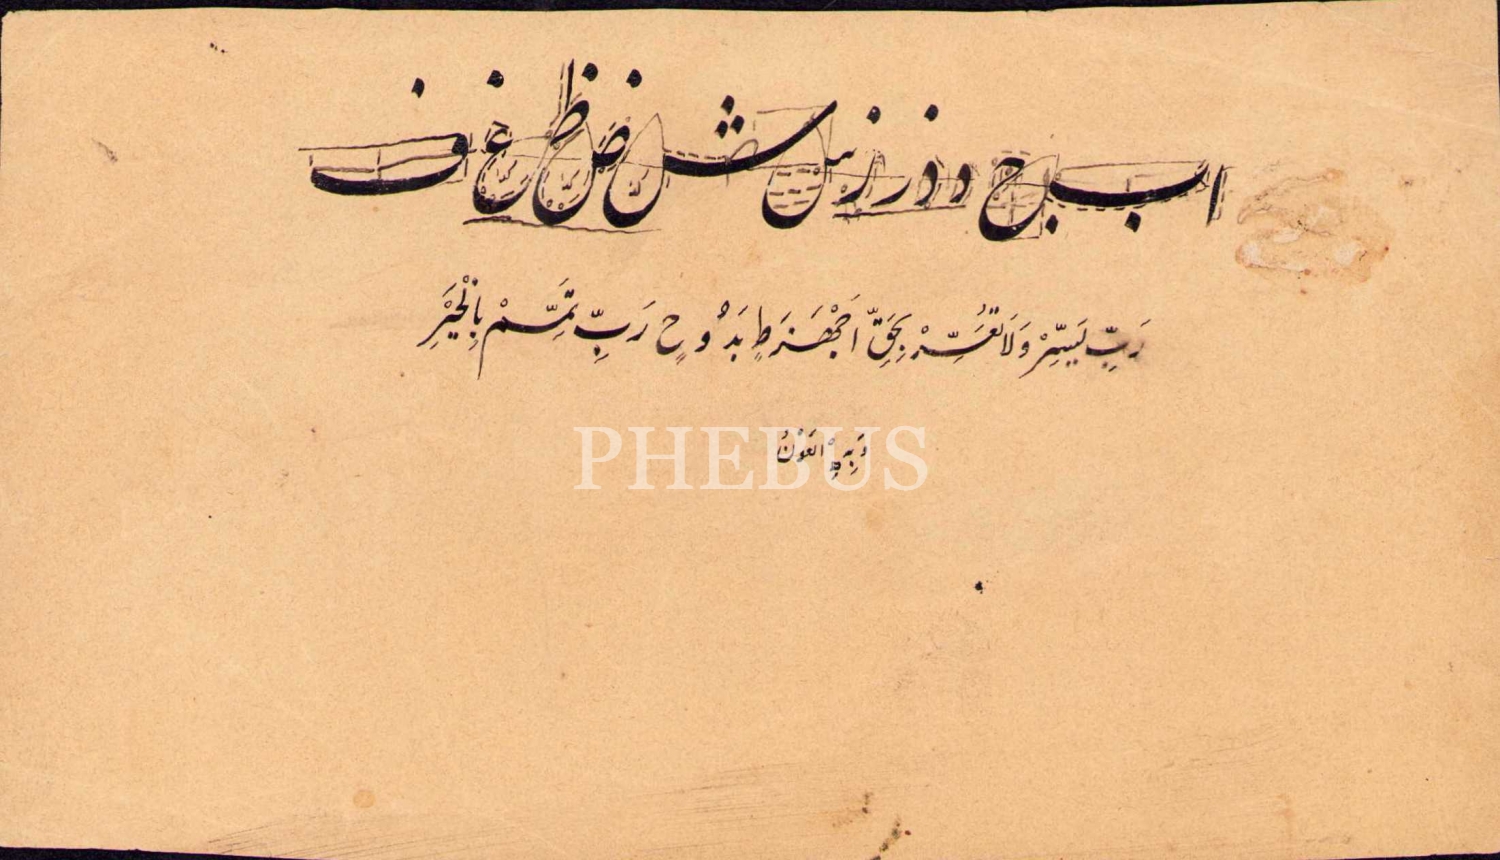 ا ب ج د ذ ر ز س ش ض ظ ع ف
رَبِّ يَسِّرْ وَلَا تُعَسِّرْ بِحَقِّ اَجْهَزَطٍ بَدُوحٍ رَبِّ تَمِّمْ بِالْخَيْرِ
وَبِهِ الْعَوْنُ
PHEBUS